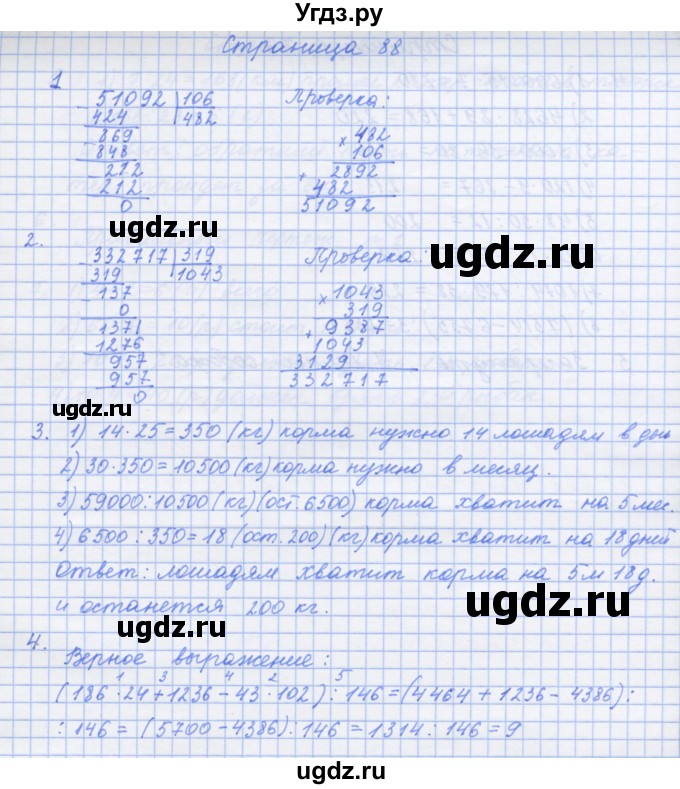 Угдз.ру
Страница 88
1
51092 | 106
424 | 482
869
848
212
212
0
Проверка:
× 482
106
+ 2892
482
51092
ugdz.ru
ugdz.ru
2.
332717 | 319
319 | 1043
137
0
1371
1276
957
957
0
Проверка:
× 1043
319
+ 9387
1043
3129
332717
ugdz.ru
3. 1) 14·25=350 (кг) корма нужно 14 лошадям в день
2) 30·350=10500 (кг) корма нужно в месяц.
3) 59000:10500 (кг) (ост. 6500) корма хватит на 5 мес.
4) 6500:350=18 (ост. 200) (кг) корма хватит на 18 дней
Ответ: лошадям хватит корма на 5 м 18 д.
и останется 200 кг.
ugdz.ru
ugdz.ru
4.
Верное выражение:
1 3 4 2 5
(186·24+1236-43·102):146=(4464+1236-4386):
:146=(5700-4386):146=1314:146=9
ugdz.ru
Угдз.ру